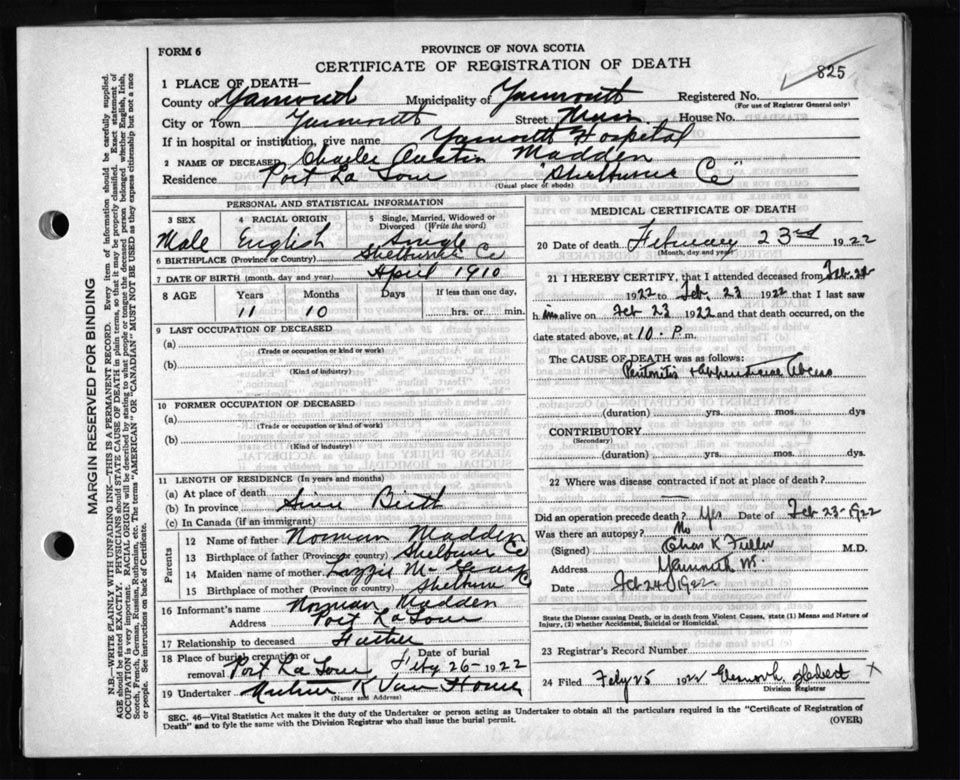 825
FORM 6
PROVINCE OF NOVA SCOTIA
CERTIFICATE OF REGISTRATION OF DEATH
1 PLACE OF DEATH—
County of Yarmouth Municipality of Yarmouth Registered No.
(For use of Registrar General only)
City or Town Yarmouth Street Main House No.
If in hospital or institution, give name Yarmouth Hospital
2 NAME OF DECEASED Charles Austin Madden
Residence Port La Tour Shelburne Co
(Usual place of abode)
PERSONAL AND STATISTICAL INFORMATION
3 SEX
Male
4 RACIAL ORIGIN
English
5 Single, Married, Widowed or Divorced (Write the word)
Single
6 BIRTHPLACE (Province or Country) Shelburne Co
7 DATE OF BIRTH (month, day and year) April 1910
8 AGE Years Months Days If less than one day,
11 10 hrs. or min.
9 LAST OCCUPATION OF DECEASED
(a)
(Trade or occupation or kind or work)
(b)
(Kind of industry)
10 FORMER OCCUPATION OF DECEASED
(a)
(Trade or occupation or kind of work)
(b)
(Kind of industry)
11 LENGTH OF RESIDENCE (In years and months)
(a) At place of death
(b) In province Since Birth
(c) In Canada (if an immigrant)
Parents
12 Name of father Norman Madden
13 Birthplace of father (Province or country) Shelburne Co
14 Maiden name of mother Lizzie
15 Birthplace of mother (Province or country) Shelburne Co
16 Informant's name Norman Madden
Address Port La Tour
17 Relationship to deceased Father
18 Place of burial, cremation or removal Port La Tour Date of burial Feby 26-1922
19 Undertaker K Van Horne
(Name and Address)
MEDICAL CERTIFICATE OF DEATH
20 Date of death February 23rd 1922
(Month, day and year)
21 I HEREBY CERTIFY, that I attended deceased from Feb.
1922 to Feb. 23 1922 that I last saw
h im alive on Feb 23 1922 and that death occurred, on the
date stated above, at 10 - P. m.
The CAUSE OF DEATH was as follows:
Peritonitis Abcess
(duration) yrs. mos. dys
CONTRIBUTORY
(Secondary)
(duration) yrs. mos. dys.
22 Where was disease contracted if not at place of death?
Did an operation precede death? Yes Date of Feb 23-1922
Was there an autopsy? No
(Signed) Chas K Fuller M.D.
Address Yarmouth
Date Feb 24 1922
State the Disease causing Death, or in death from Violent Causes, state (1) Means and Nature of Injury, (2) whether Accidental, Suicidal or Homicidal.
23 Registrar's Record Number
24 Filed Feby 25 1922
Division Registrar
SEC. 46—Vital Statistics Act makes it the duty of the Undertaker or person acting as Undertaker to obtain all the particulars required in the "Certificate of Registration of
Death" and to fyle the same with the Division Registrar who shall issue the burial permit.
(OVER)
MARGIN RESERVED FOR BINDING
N.B.—WRITE PLAINLY WITH UNFADING INK—THIS IS A PERMANENT RECORD. Every item of information should be carefully supplied.
AGE should be stated EXACTLY. PHYSICIANS should STATE CAUSE OF DEATH in plain terms, so that it may be properly classified. Exact statement of
OCCUPATION is very important. RACIAL ORIGIN will be described by stating to what people or tongue the deceased person belonged whether English, Irish,
Scotch, French, German, Russian, Ruthenian, etc. The terms "AMERICAN" OR "CANADIAN" MUST NOT BE USED as they express citizenship but not a race
or people. See instructions on back of Certificate.